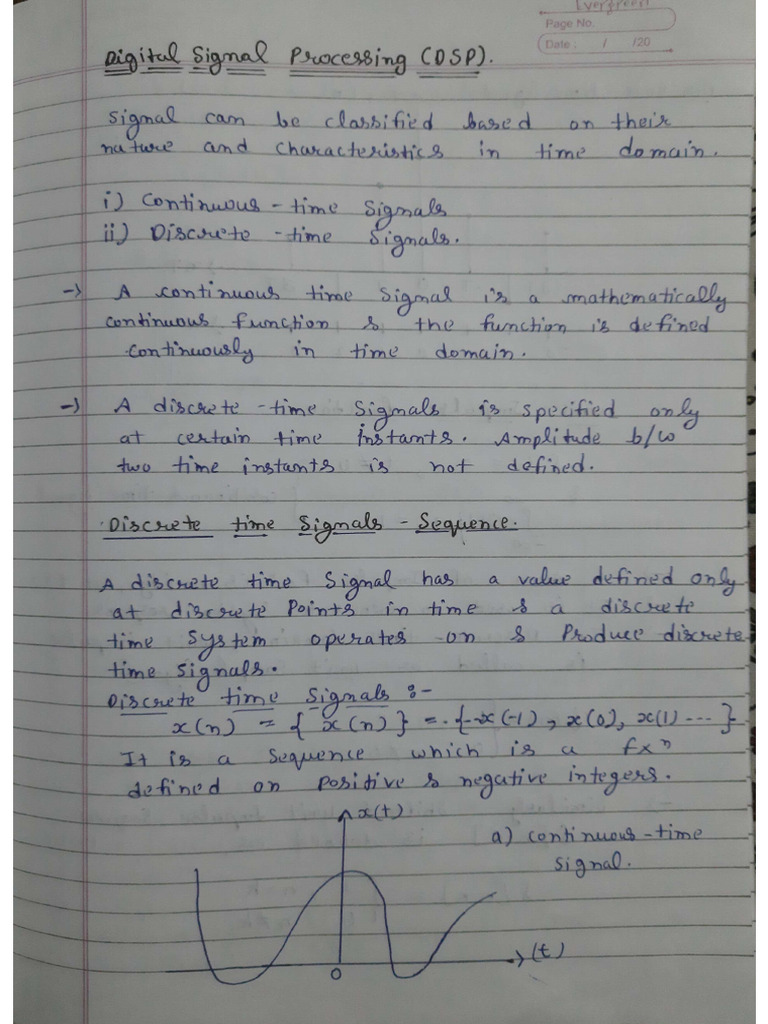 Evergreen
Page No.
Date : / /20
Digital Signal Processing (DSP).
Signal can be classified based on their
nature and characteristics in time domain.
i) Continuous - time Signals
ii) Discrete - time Signals.
→ A continuous time Signal is a mathematically
continuous function & the function is defined
continuously in time domain.
→ A discrete - time Signals is specified only
at certain time instants. Amplitude b/w
two time instants is not defined.
Discrete time Signals - Sequence.
A discrete time Signal has a value defined only
at discrete Points in time & a discrete
time System operates on & Produce discrete
time Signals.
Discrete time Signals :-
x(n) = { x(n) } = {--x(-1), x(0), x(1) --- }
It is a Sequence which is a fxⁿ
defined on Positive & negative integers.
x(t)
a) continuous-time
Signal.
(t)
0